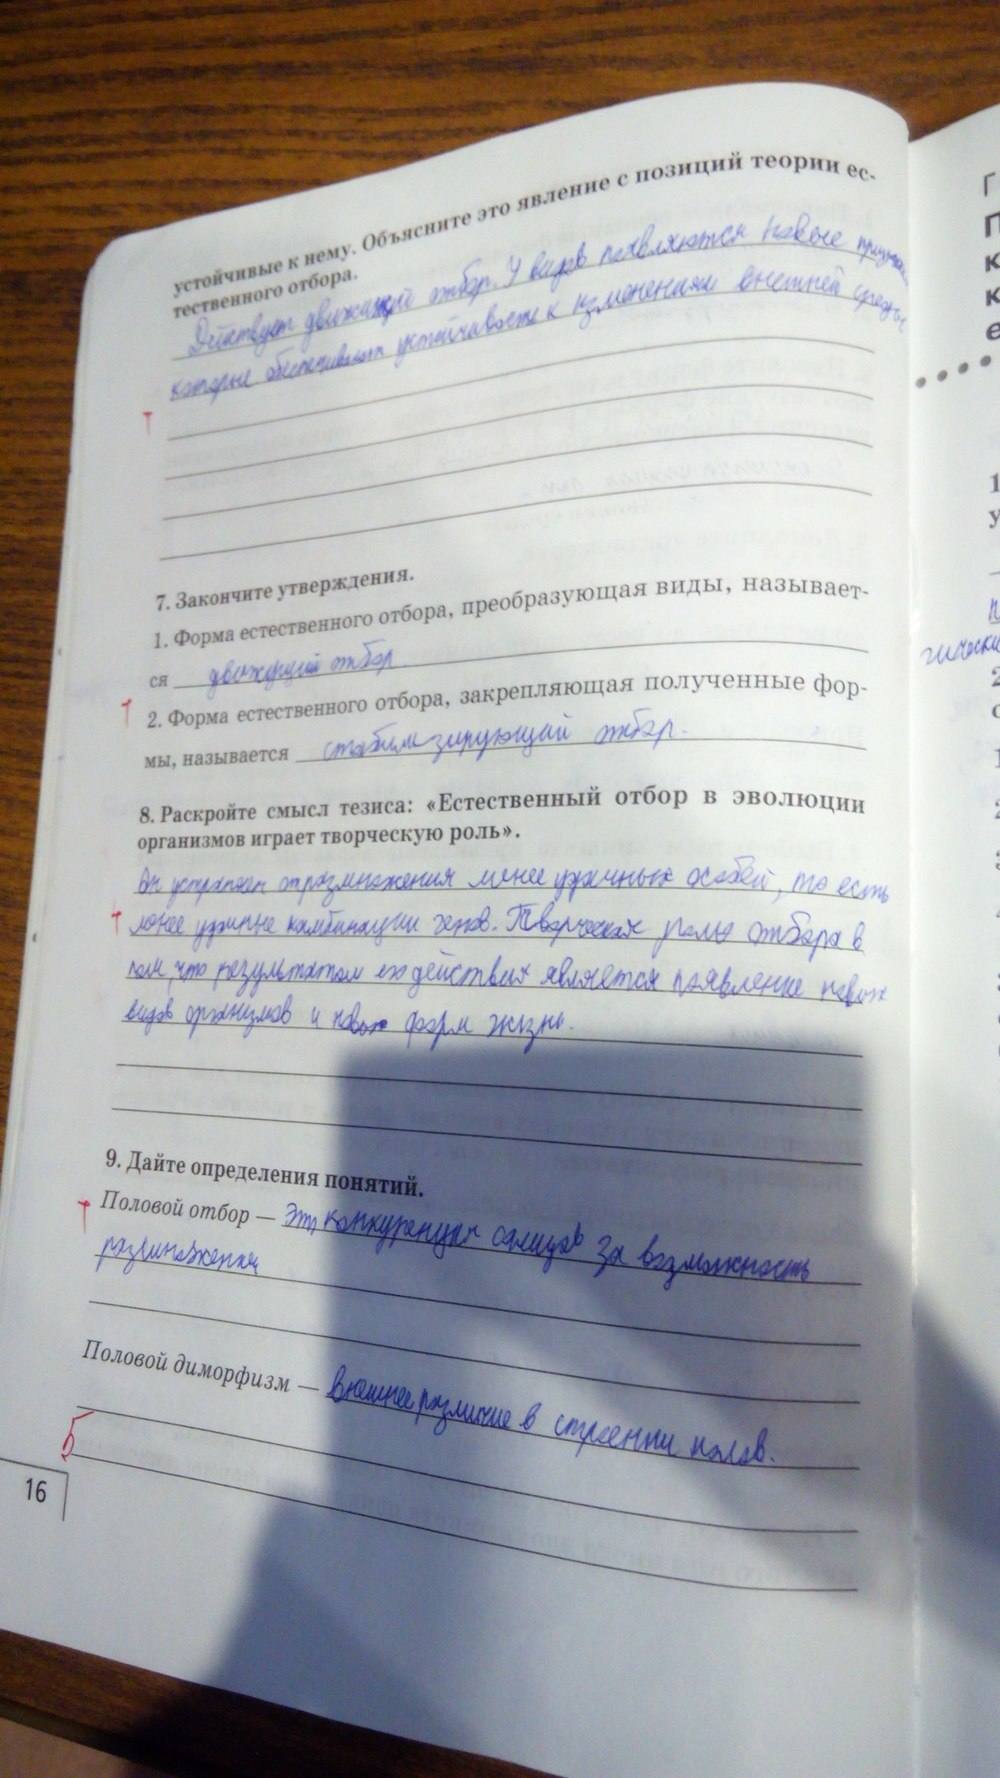 устойчивые к нему. Объясните это явление с позиций теории ес-
тественного отбора.
Действует движущий отбор. У видов появляются новые признаки
которые обеспечивают устойчивость к изменениям внешней среды
7. Закончите утверждения.
1. Форма естественного отбора, преобразующая виды, называет-
ся движущий отбор
2. Форма естественного отбора, закрепляющая полученные фор-
мы, называется стабилизирующий отбор.
8. Раскройте смысл тезиса: «Естественный отбор в эволюции
организмов играет творческую роль».
Он устраняет от размножения менее удачных особей, то есть
менее удачные комбинации генов. Творческая роль отбора в
том, что результатом его действия является появление новых
видов организмов и новых форм жизни.
9. Дайте определения понятий.
Половой отбор — Это, конкуренция самцов за возможность
размножения
Половой диморфизм — внешнее различие в строении полов.
5
16
Г
П
к
к
е
1
у
п
гически
2
с
1
2